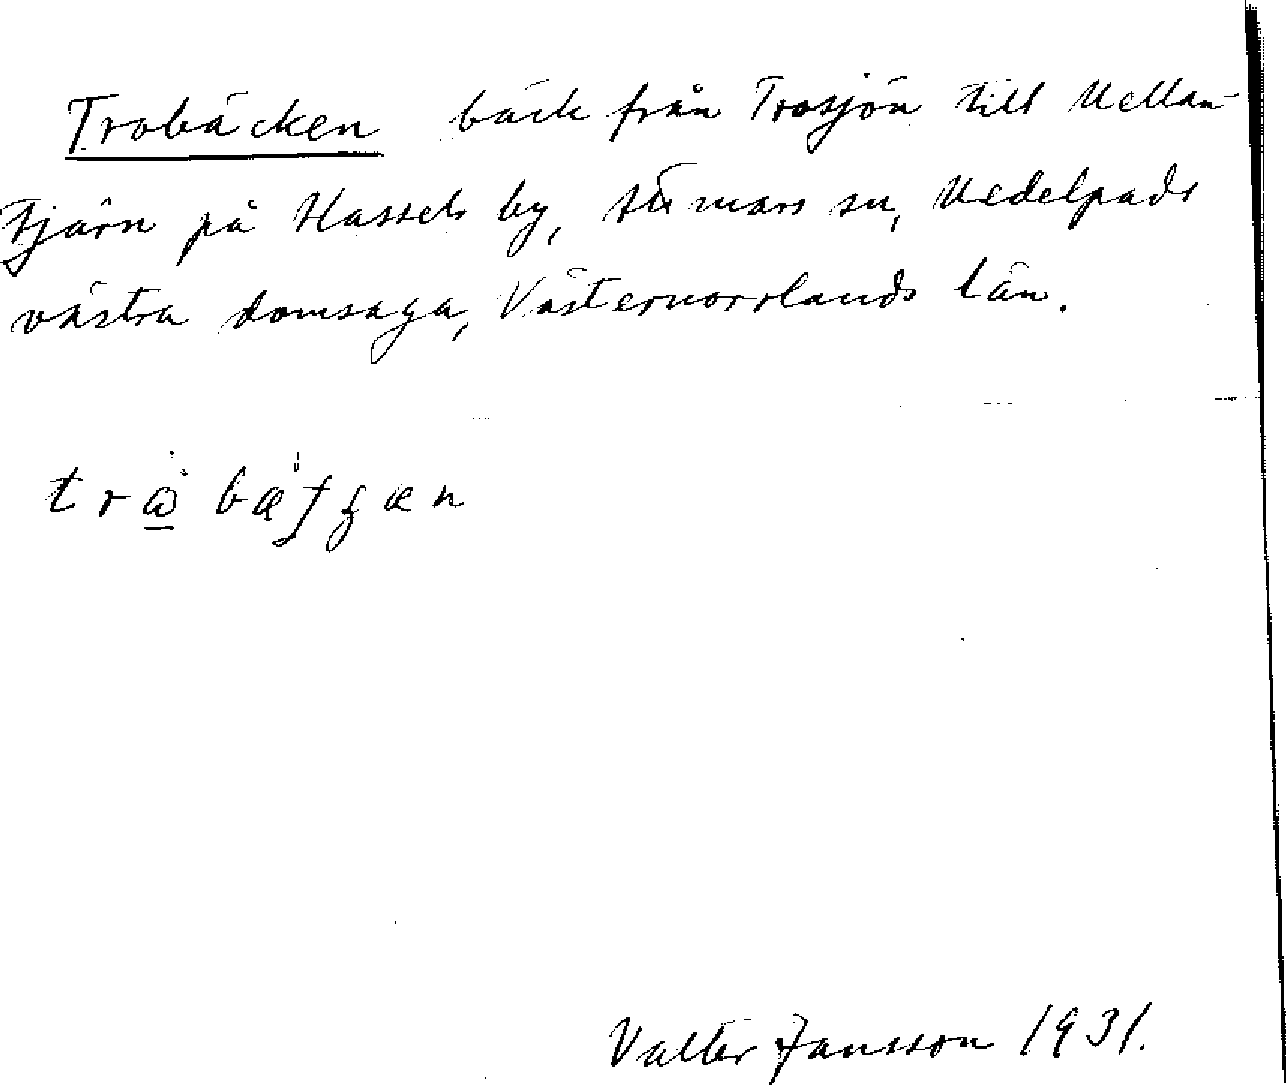 Trobäcken bäck från Trosjön till Mellan-
tjärn på Hassels by, Attmars sn, Medelpads
västra domsaga, Västernorrlands län.
Valter Jansson 1931.